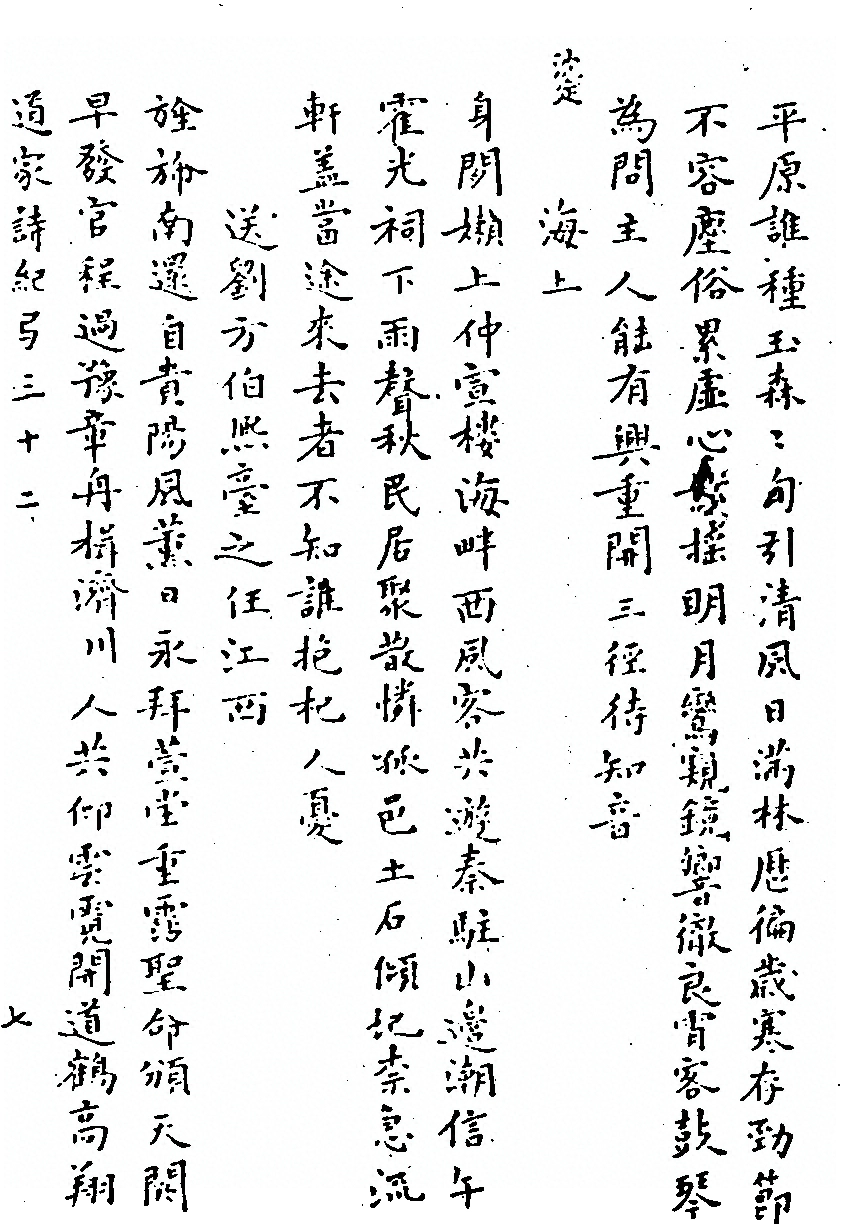 平原誰種玉森〻勾引清風日滿林歷徧歲寒存勁節
不容塵俗累虛心搖明月鸞窺鏡響徹良宵客鼓琴
為問主人能有興重開三徑待知音
海上
身閒嬾上仲宣樓海畔西風客共遊秦駐山邊潮信午
霍光祠下雨聲秋民居聚散憐孤邑土石傾圮柰急流
軒蓋當途來去者不知誰抱杞人憂
送劉方伯熙臺之任江西
旌斾南還自貴陽風薰日永拜萱堂重霑聖命頒天闕
早發官程過豫章舟楫濟川人共仰雲霓開道鶴高翔
道家詩紀弓三十二
七